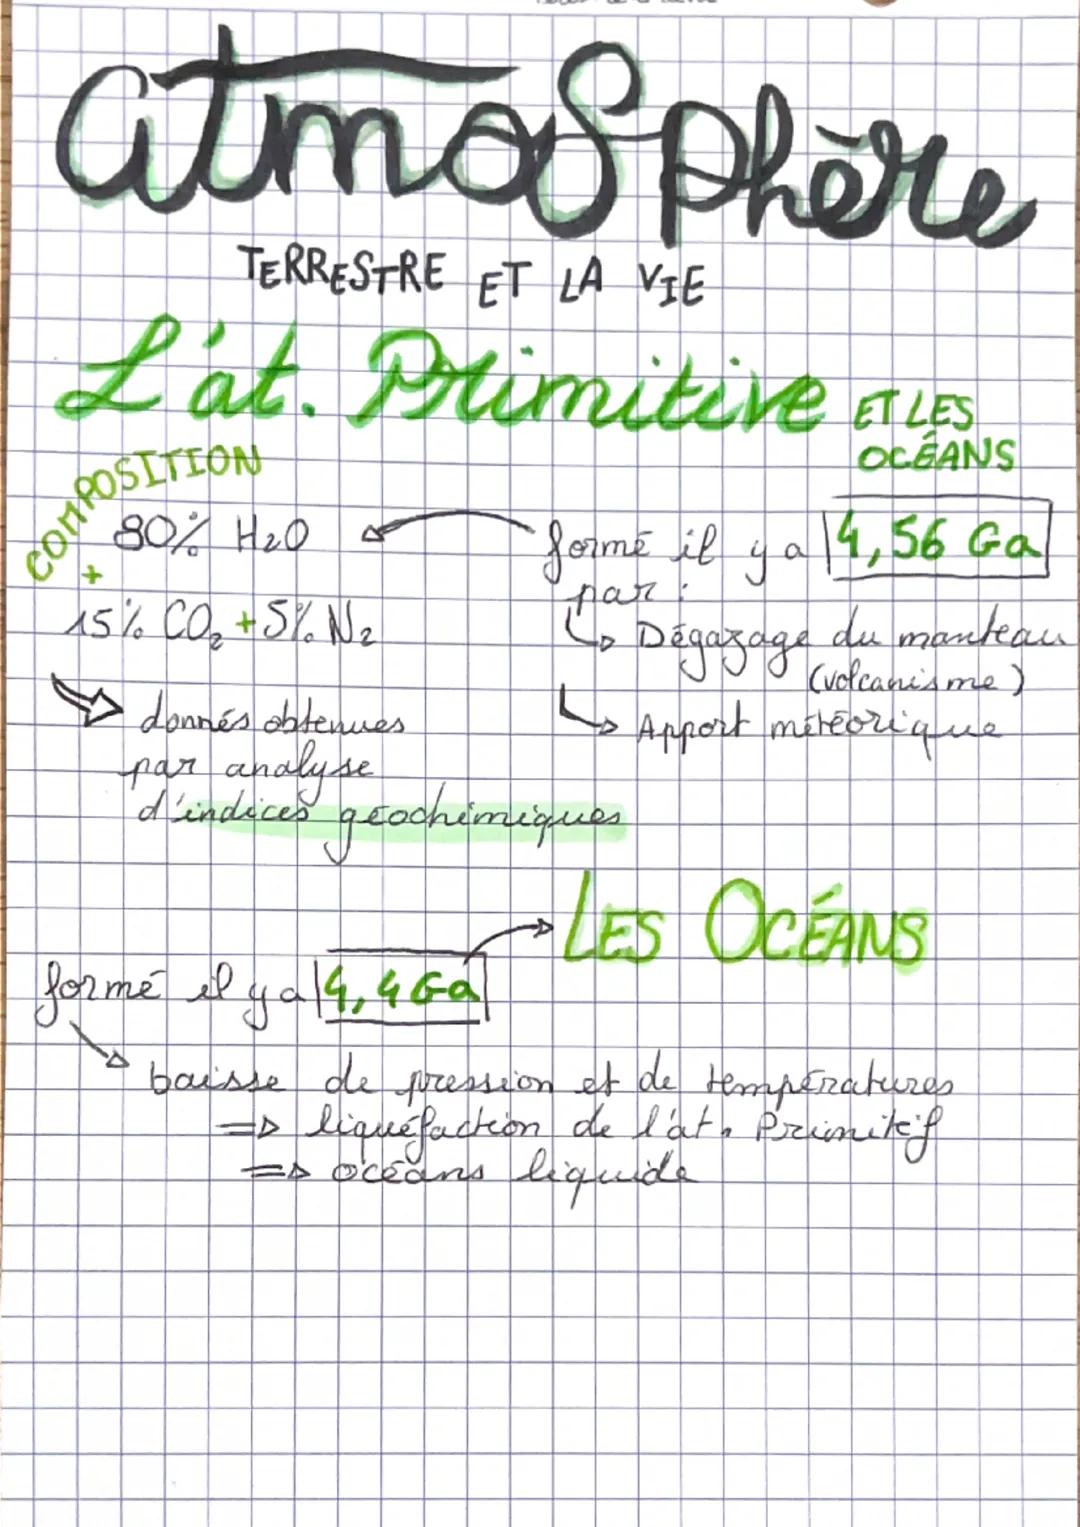 atmosphère
TERRESTRE ET LA VIE
L'at. Primitive ET LES
OCÉANS
COMPOSITION
80% H2O
+
15% CO2 + 5% N2
formé il y a 4,56 Ga
par :
↳ Dégazage du manteau
(volcanisme)
↳ Apport météorique
⇒ donnés obtenues
par analyse
d'indices géochimiques
LES OCÉANS
formé il y a 4,4 Ga
baisse de pression et de températures
⇒ liquéfaction de l'at. Primitif
⇒ océans liquide